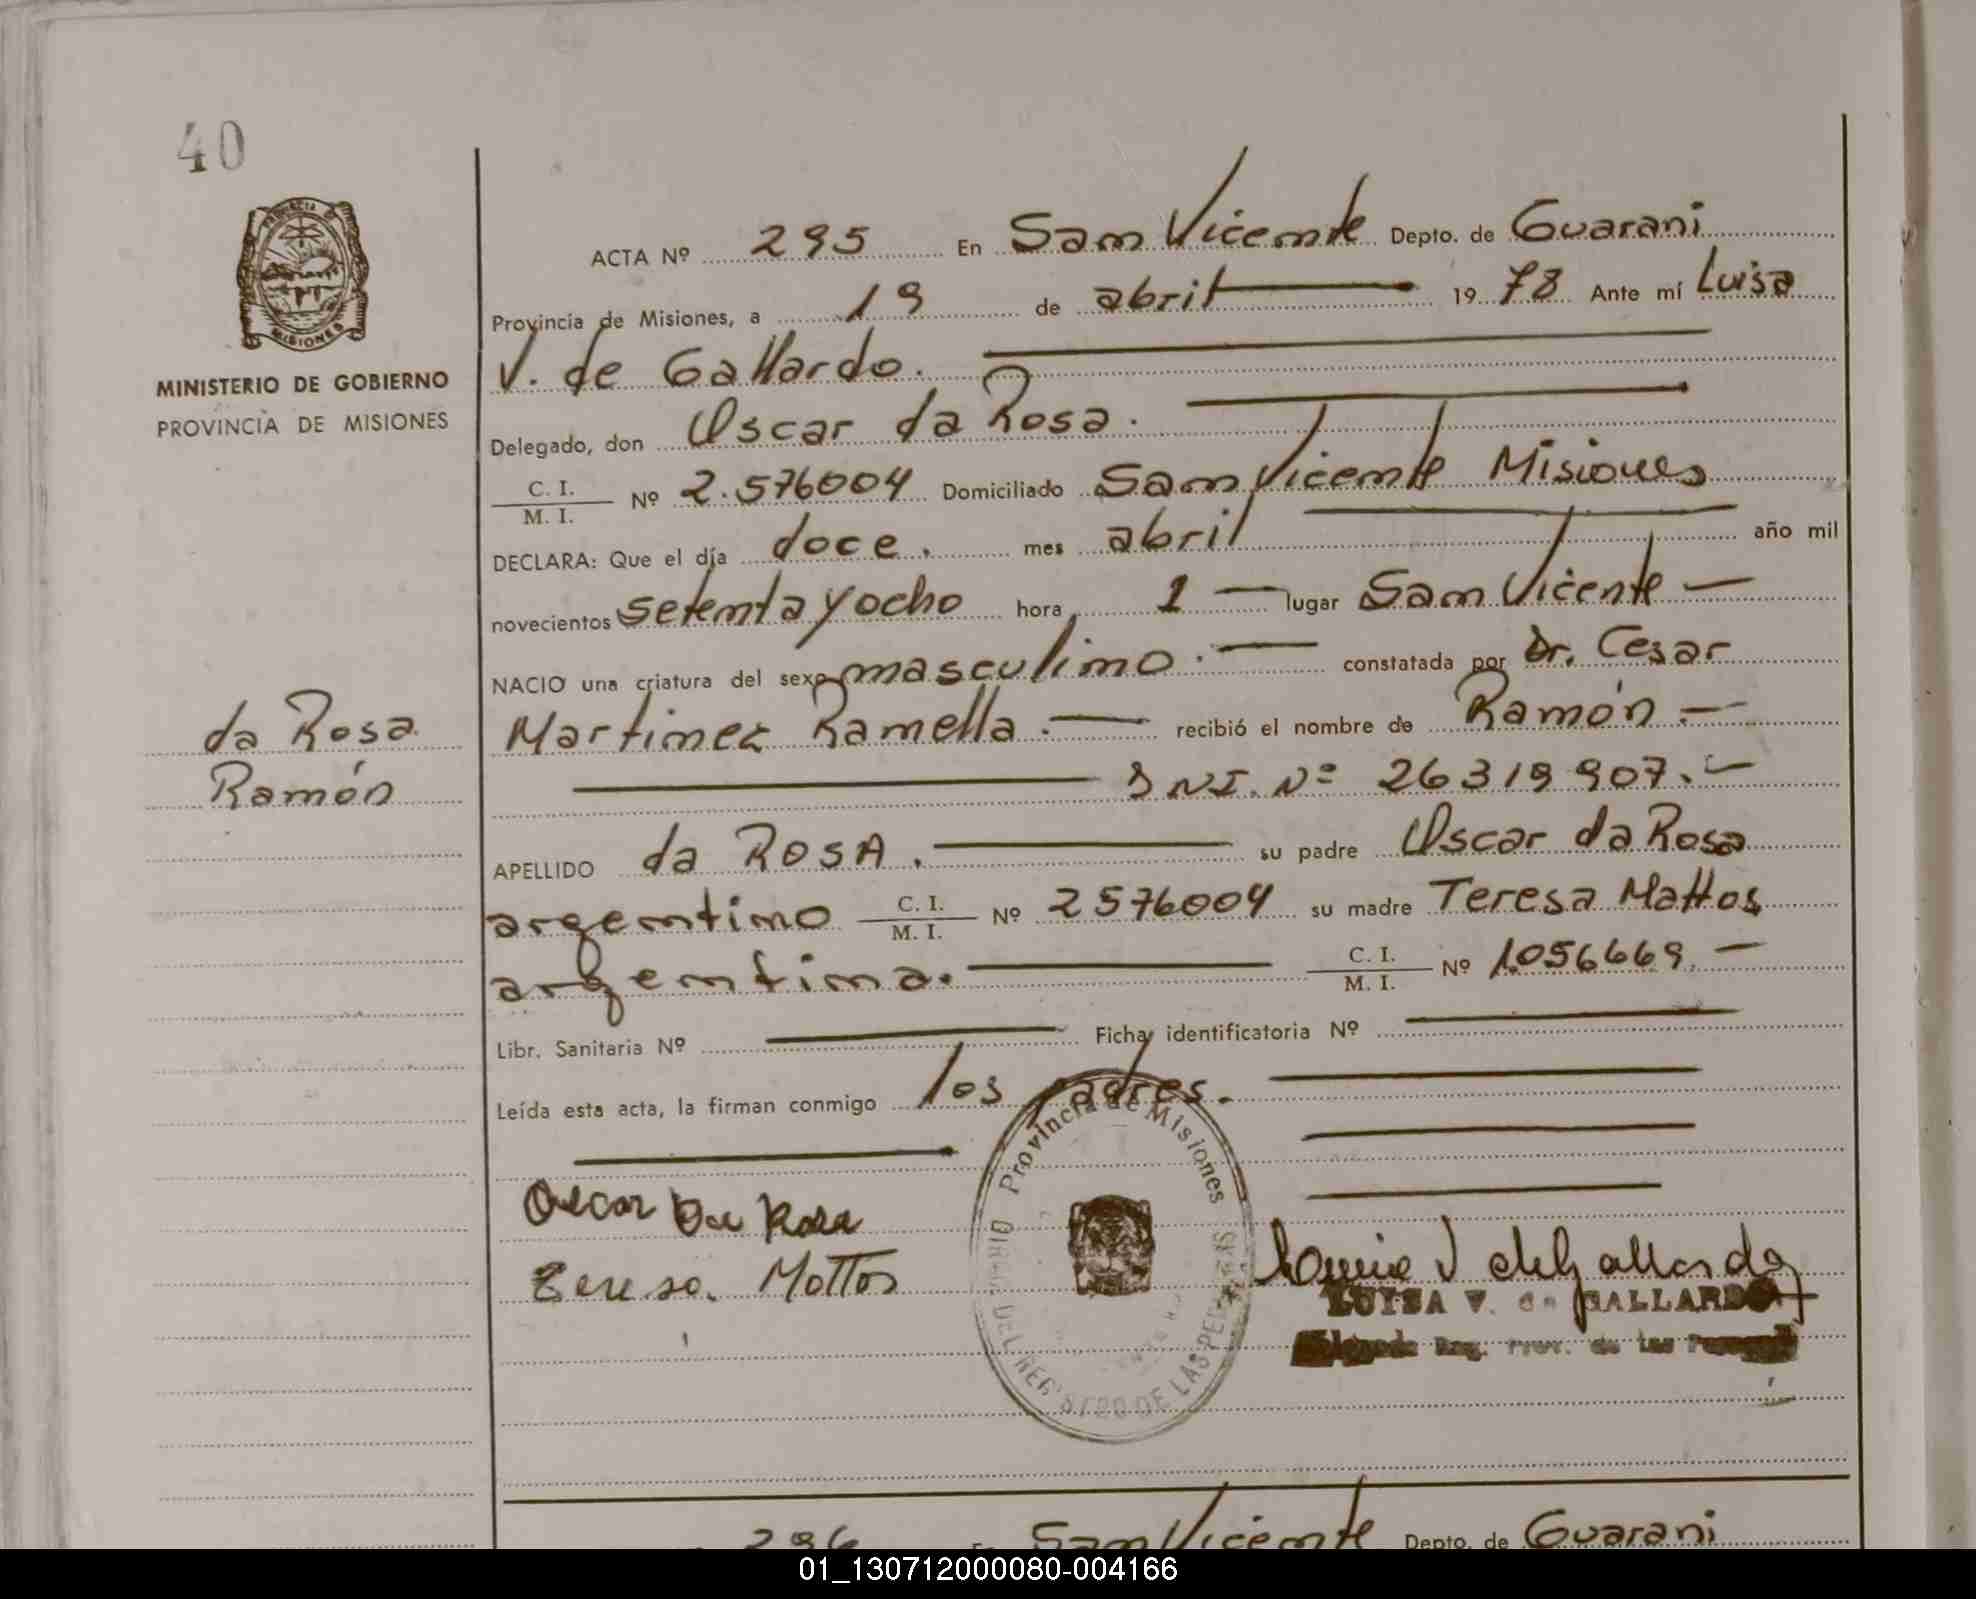 40
PROVINCIA DE
MISIONES
MINISTERIO DE GOBIERNO
PROVINCIA DE MISIONES
da Rosa
Ramón
ACTA Nº 295 En San Vicente Depto. de Guarani
Provincia de Misiones, a 19 de abril 1978 Ante mí Luisa
V. de Gallardo.
Delegado, don Oscar da Rosa.
C. I.
M. I. Nº 2.576004 Domiciliado San Vicente Misiones
DECLARA: Que el día doce. mes abril año mil
novecientos setenta y ocho hora 1 — lugar San Vicente —
NACIO una criatura del sexo masculino. — constatada por Dr. Cesar
Martinez Ramella. — recibió el nombre de Ramón. —
D NI. Nº 26319907. —
APELLIDO da ROSA. su padre Oscar da Rosa
argentino C. I.
M. I. Nº 2576004 su madre Teresa Mattos
argentina. C. I.
M. I. Nº 1.056669. —
Libr. Sanitaria Nº Ficha identificatoria Nº
Leída esta acta, la firman conmigo los padres.
Oscar Da Rosa
Teresa. Mattos
Provincia de Misiones
DEL REGISTRO DE LAS PERSONAS
Luisa V de Gallardo
LUISA V. de GALLARDO
Delegado Reg. Prov. de las Personas
296 En San Vicente Depto. de Guarani
01_130712000080-004166